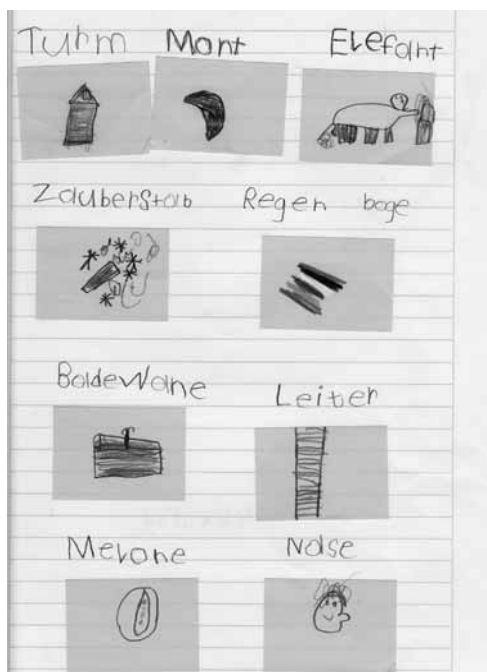 Turm Mont Elefant
Zauberstab Regen boge
BadeWane Leiter
Melone Nase